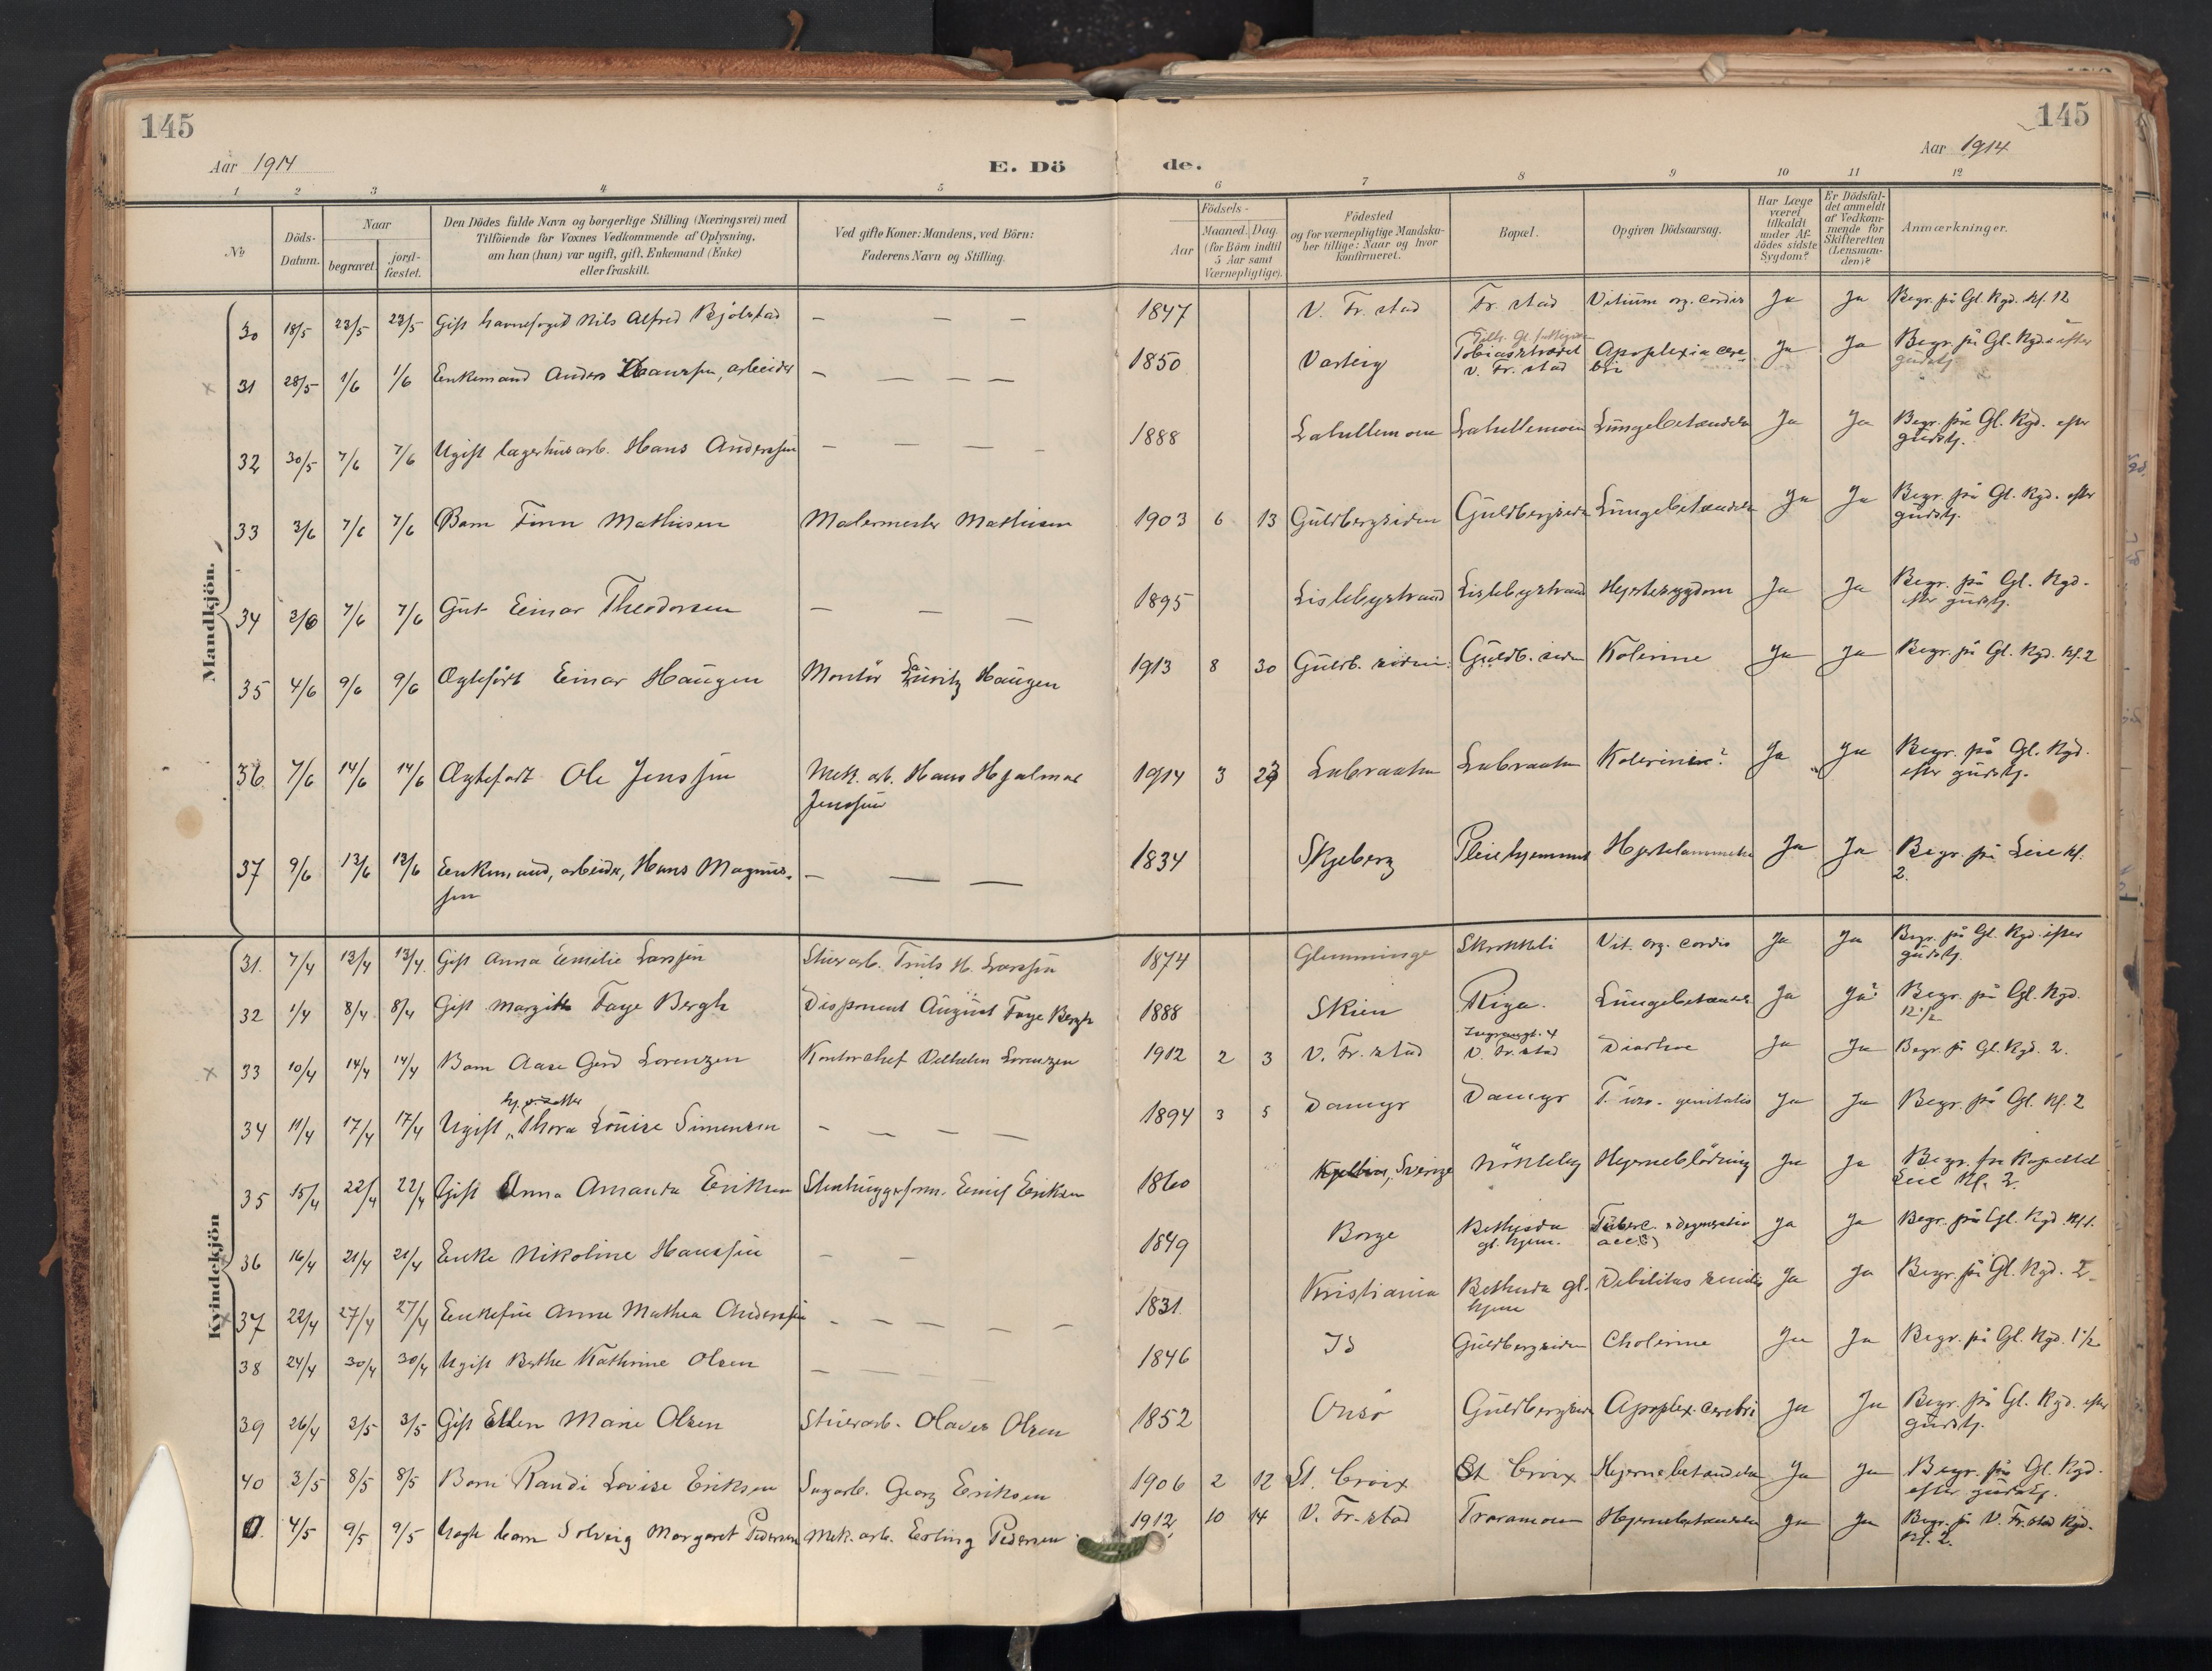 145
145
Aar 1914
E. Dö
de.
Aar 1914
1 2 3 4 5 6 7 8 9 10 11 12
No
Döds-Datum.
Naar
begravet.
jord-fæstet.
Den Dödes fulde Navn og borgerlige Stilling (Næringsvei) med
Tilföiende for Voxnes Vedkommende af Oplysning,
om han (hun) var ugift, gift, Enkemand (Enke)
eller fraskilt.
Ved gifte Koner: Mandens, ved Börn:
Faderens Navn og Stilling.
Födsels-
Aar
Maaned. Dag.
(for Börn indtil
5 Aar samt
Værnepligtige).
Födested
og for værnepligtige Mandska-
ber tillige: Naar og hvor
Konfirmeret.
Bopæl.
Opgiven Dödsaarsag.
Har Læge
været
tilkaldt
under Af-
dödes sidste
Sygdom?
Er Dödsfal-
det anmeldt
af Vedkom-
mende för
Skifteretten
(Lensman-
den)?
Anmærkninger.
Mandkjön.
30 18/5 23/5 23/5 Gift havnefoged Nils Alfred Bjölstad — — — 1847 V. Fr. stad Fr. stad Vitium org. cordis Ja Ja Begr. på Gl. Kgd. Kl. 12
31 28/5 1/6 1/6 Enkemand Anders Hanssen, arbeider — — — — 1850 Varteig Tobiasstrædet
V. Fr. stad Apoplexia cere-
bri Ja Ja Begr. på Gl. Kgd. efter
gudstj.
32 30/5 7/6 7/6 Ugift lagerhusarb. Hans Anderssen — — — — 1888 Lahellemoen Lahellemoen Lungebetændelse Ja Ja Begr. på Gl. Kgd. efter
gudstj.
33 3/6 7/6 7/6 Barn Finn Mathisen Malermester Mathisen 1903 6 13 Guldbergsiden Guldbergsiden Lungebetændelse Ja Ja Begr. på Gl. Kgd. efter
gudstj.
34 2/6 7/6 7/6 Gut Einar Theodorsen — — — 1895 Lislebystrand Lislebystrand Hjertesygdom Ja Ja Begr. på Gl. Kgd.
efter gudstj.
35 4/6 9/6 9/6 Ægtefödt Einar Haugen Montör Lauritz Haugen 1913 8 30 Guldb. siden Guldb. siden Kolerine Ja Ja Begr. på Gl. Kgd. Kl. 2
36 7/6 14/6 14/6 Ægtefödt Ole Jenssen Mek. arb. Hans Hjalmar
Jenssen 1914 3 Labraaten Labraaten Kolerine? Ja Ja Begr. på Gl. Kgd.
efter gudstj.
37 9/6 13/6 13/6 Enkemand, arbeider, Hans Magnus-
sen — — — 1834 Skjeberg Pleiehjemmet Hjertelammelse Ja Ja Begr. på Leie kl.
2.
Kvindekjön
31. 7/4 13/4 13/4 Gift Anna Emilie Larssen Stuerarb. Truls H. Larssen 1874 Glemminge Skrokkeli Vit. org. cordis Ja Ja Begr. på Gl. Kgd. efter
gudstj.
32 1/4 8/4 8/4 Gift Margith Faye Bergh Disponent August Faye Bergh 1888 Skien Riga. Lungebetændelse Ja Ja Begr. på Gl. Kgd.
12 1/2
33 10/4 14/4 14/4 Barn Aase Gerd Lorenzen Kontorchef Vilhelm Lorenzen 1912 2 3 V. Fr. stad V. Fr. stad Diarhoe Ja Ja Begr. på Gl. Kgd. 2.
34 11/4 17/4 17/4 Ugift Thora Louise Simensen — — — — 1894 3 5 Damyr Damyr T. uro-genitalis Ja Ja Begr. på Gl. Kl. 2
35 15/4 22/4 22/4 Gift Anna Amanda Eriksen Stenhuggerform. Emil Eriksen 1860 Sverige Nökleby Hjerneblödning Ja Ja Begr. fra Kapellet
Leie Kl. 2.
36 16/4 21/4 21/4 Enke Nikoline Hanssen — — 1849 Borge Bethesda
gl. hjem. Ja Ja Begr. på Gl. Kgd. Kl 1.
37 22/4 27/4 27/4 Enkefru Anne Mathea Anderssen — — — — — 1831. Kristiania Bethesda gl.
hjem Debilitas senilis Ja Ja Begr. på Gl. Kgd. 2
38 24/4 30/4 30/4 Ugift Berthe Kathrine Olsen — — — — 1846 Id Guldbergsiden Cholerine Ja Ja Begr. på Gl. Kgd. 1 1/2
39 26/4 3/5 3/5 Gift Ellen Marie Olsen Stuerarb. Olaves Olsen 1852 Onsö Guldbergsiden Apoplex. cerebri Ja Ja Begr. på Gl. Kgd. efter
gudstj.
40 3/5 8/5 8/5 Barn Randi Lovise Eriksen Sagarb. Georg Eriksen 1906 2 12 St. Croix St. Croix Hjernebetændelse Ja Ja Begr. på Gl. Kgd.
efter gudstj.
0. 4/5 9/5 9/5 Uægte barn Solveig Margaret Pedersen Mek. arb. Erling Pedersen 1912 10 14 V. Fr. stad Traramoen Hjernebetændelse Ja Ja Begr. på V. Fr. stad Kgd.
Kl. 2.